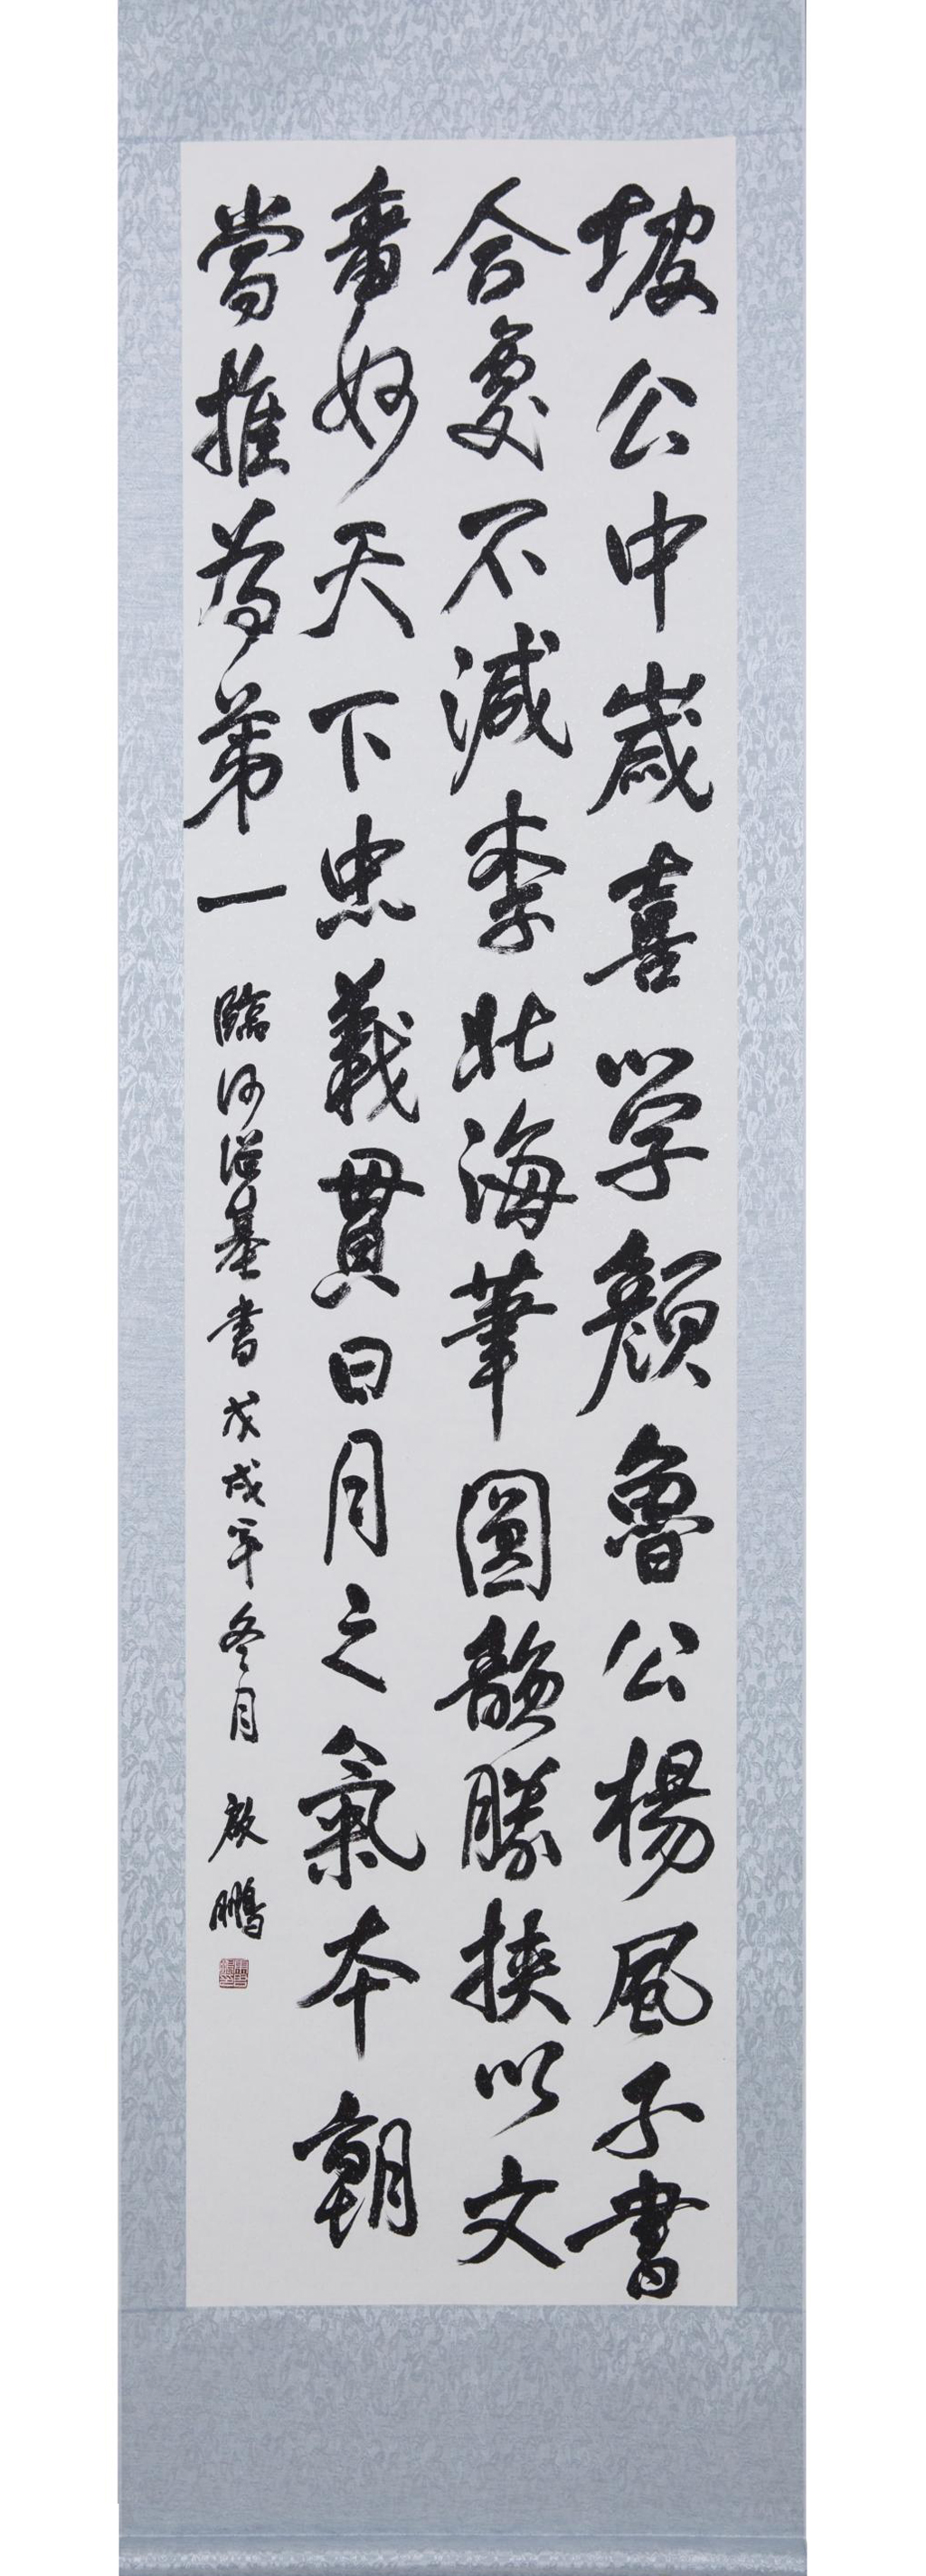 坡公中歲喜学顏魯公楊風子書
合處不減李北海筆圓韻勝挾以文
章妙天下忠義貫日月之氣本朝
當推為第一
臨何紹基書戊戌年冬月 啟鵬